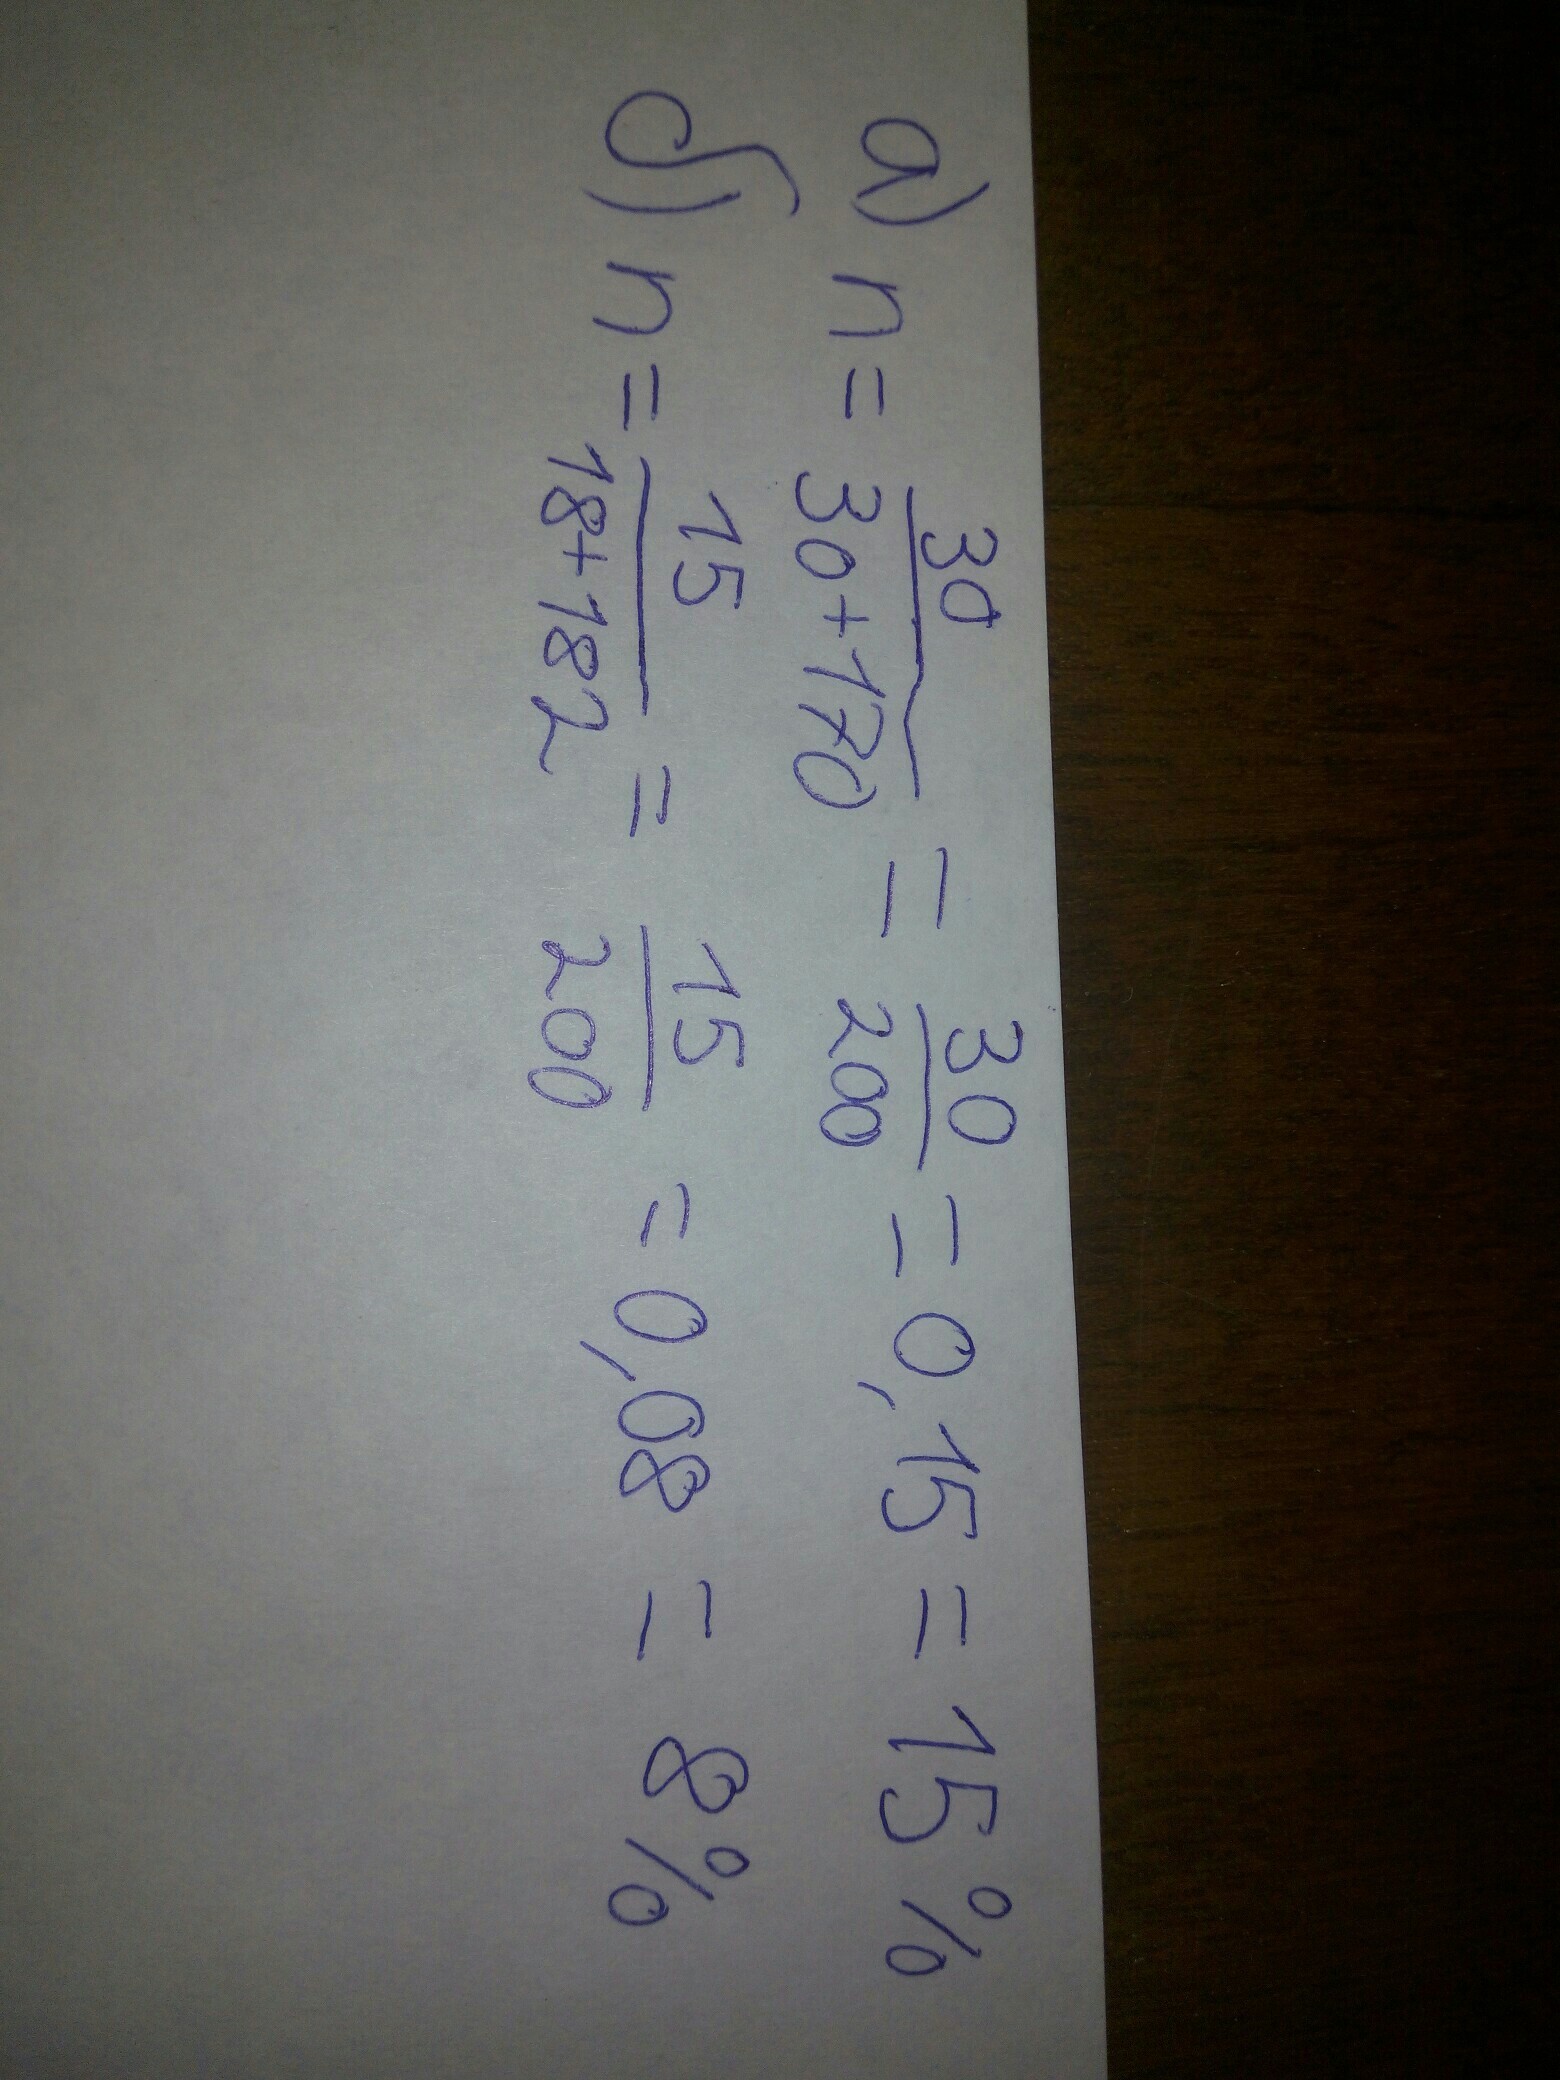 а) n = 30/(30+170) = 30/200 = 0,15 = 15%
б) n = 15/(18+182) = 15/200 = 0,08 = 8%